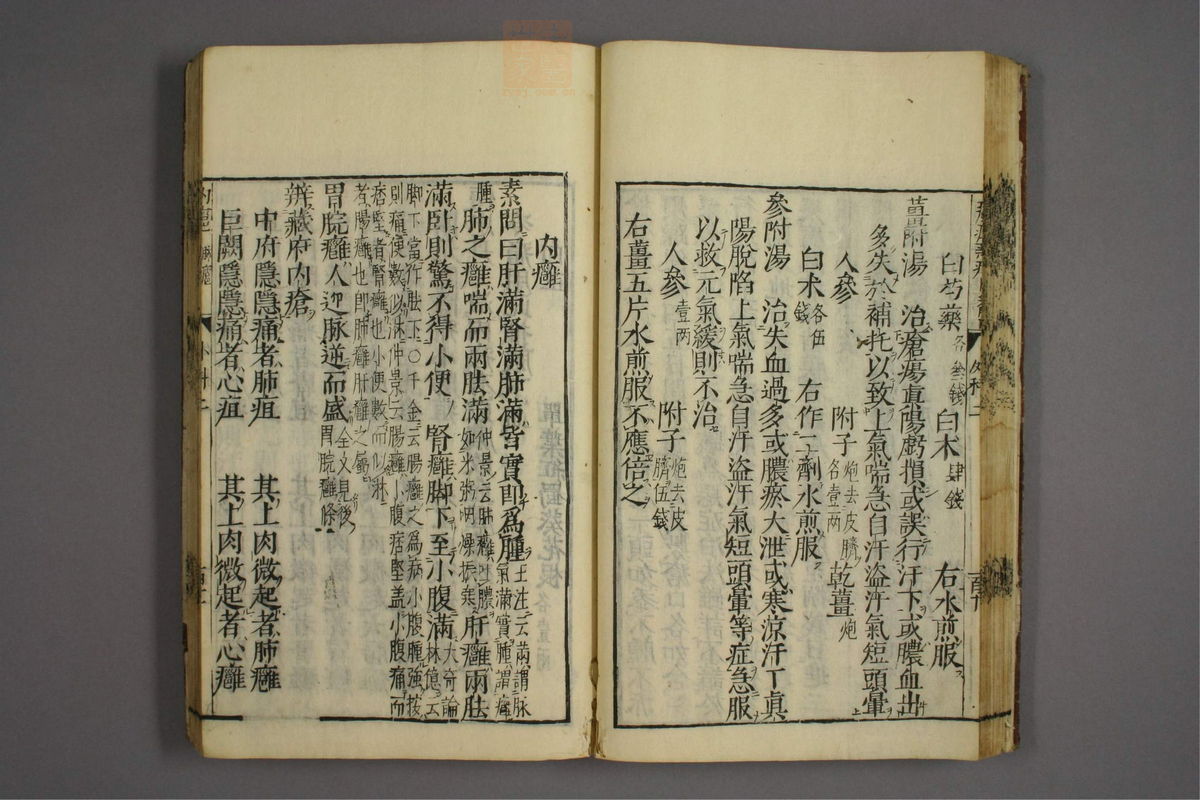 白芍藥各叁錢 白朮肆錢 右水煎服
薑附湯 治瘡瘍眞陽虧損或誤行汗下或膿血出
多失於補托以致上氣喘急自汗盜汗氣短頭暈
人參 附子炮去皮臍各壹兩 乾薑炮
白朮各伍錢 右作二劑水煎服
參附湯 治失血過多或膿瘀大泄或寒凉汗下眞
陽脫陷上氣喘急自汗盜汗氣短頭暈等症急服
以救元氣緩則不治
人參壹兩 附子炮去皮臍伍錢
右薑五片水煎服不應倍之
內癰
素問曰肝滿腎滿肺滿皆實卽爲腫王注云滿謂脉氣滿實腫謂癰
腫肺之癰喘而兩胠滿仲景云肺癰吐膿如米粥咽燥振寒肝癰兩胠
滿臥則驚不得小便 腎癰脚下至小腹滿大奇論林億云
脚下當作胠下○千金云腸癰之爲病小腹腫強按
則痛便數似淋仲景云腸癰小腹痞堅盖小腹痛而
痞堅者腎癰也小便數而似淋
者腸癰也卽肺癰肝癰之
胃脘癰人迎脉逆而盛全文見後胃脘癰條
辨藏府內瘡
中府隱隱痛者肺疽 其上肉微起者肺癰
巨闕隱隱痛者心疽 其上肉微起者心癰